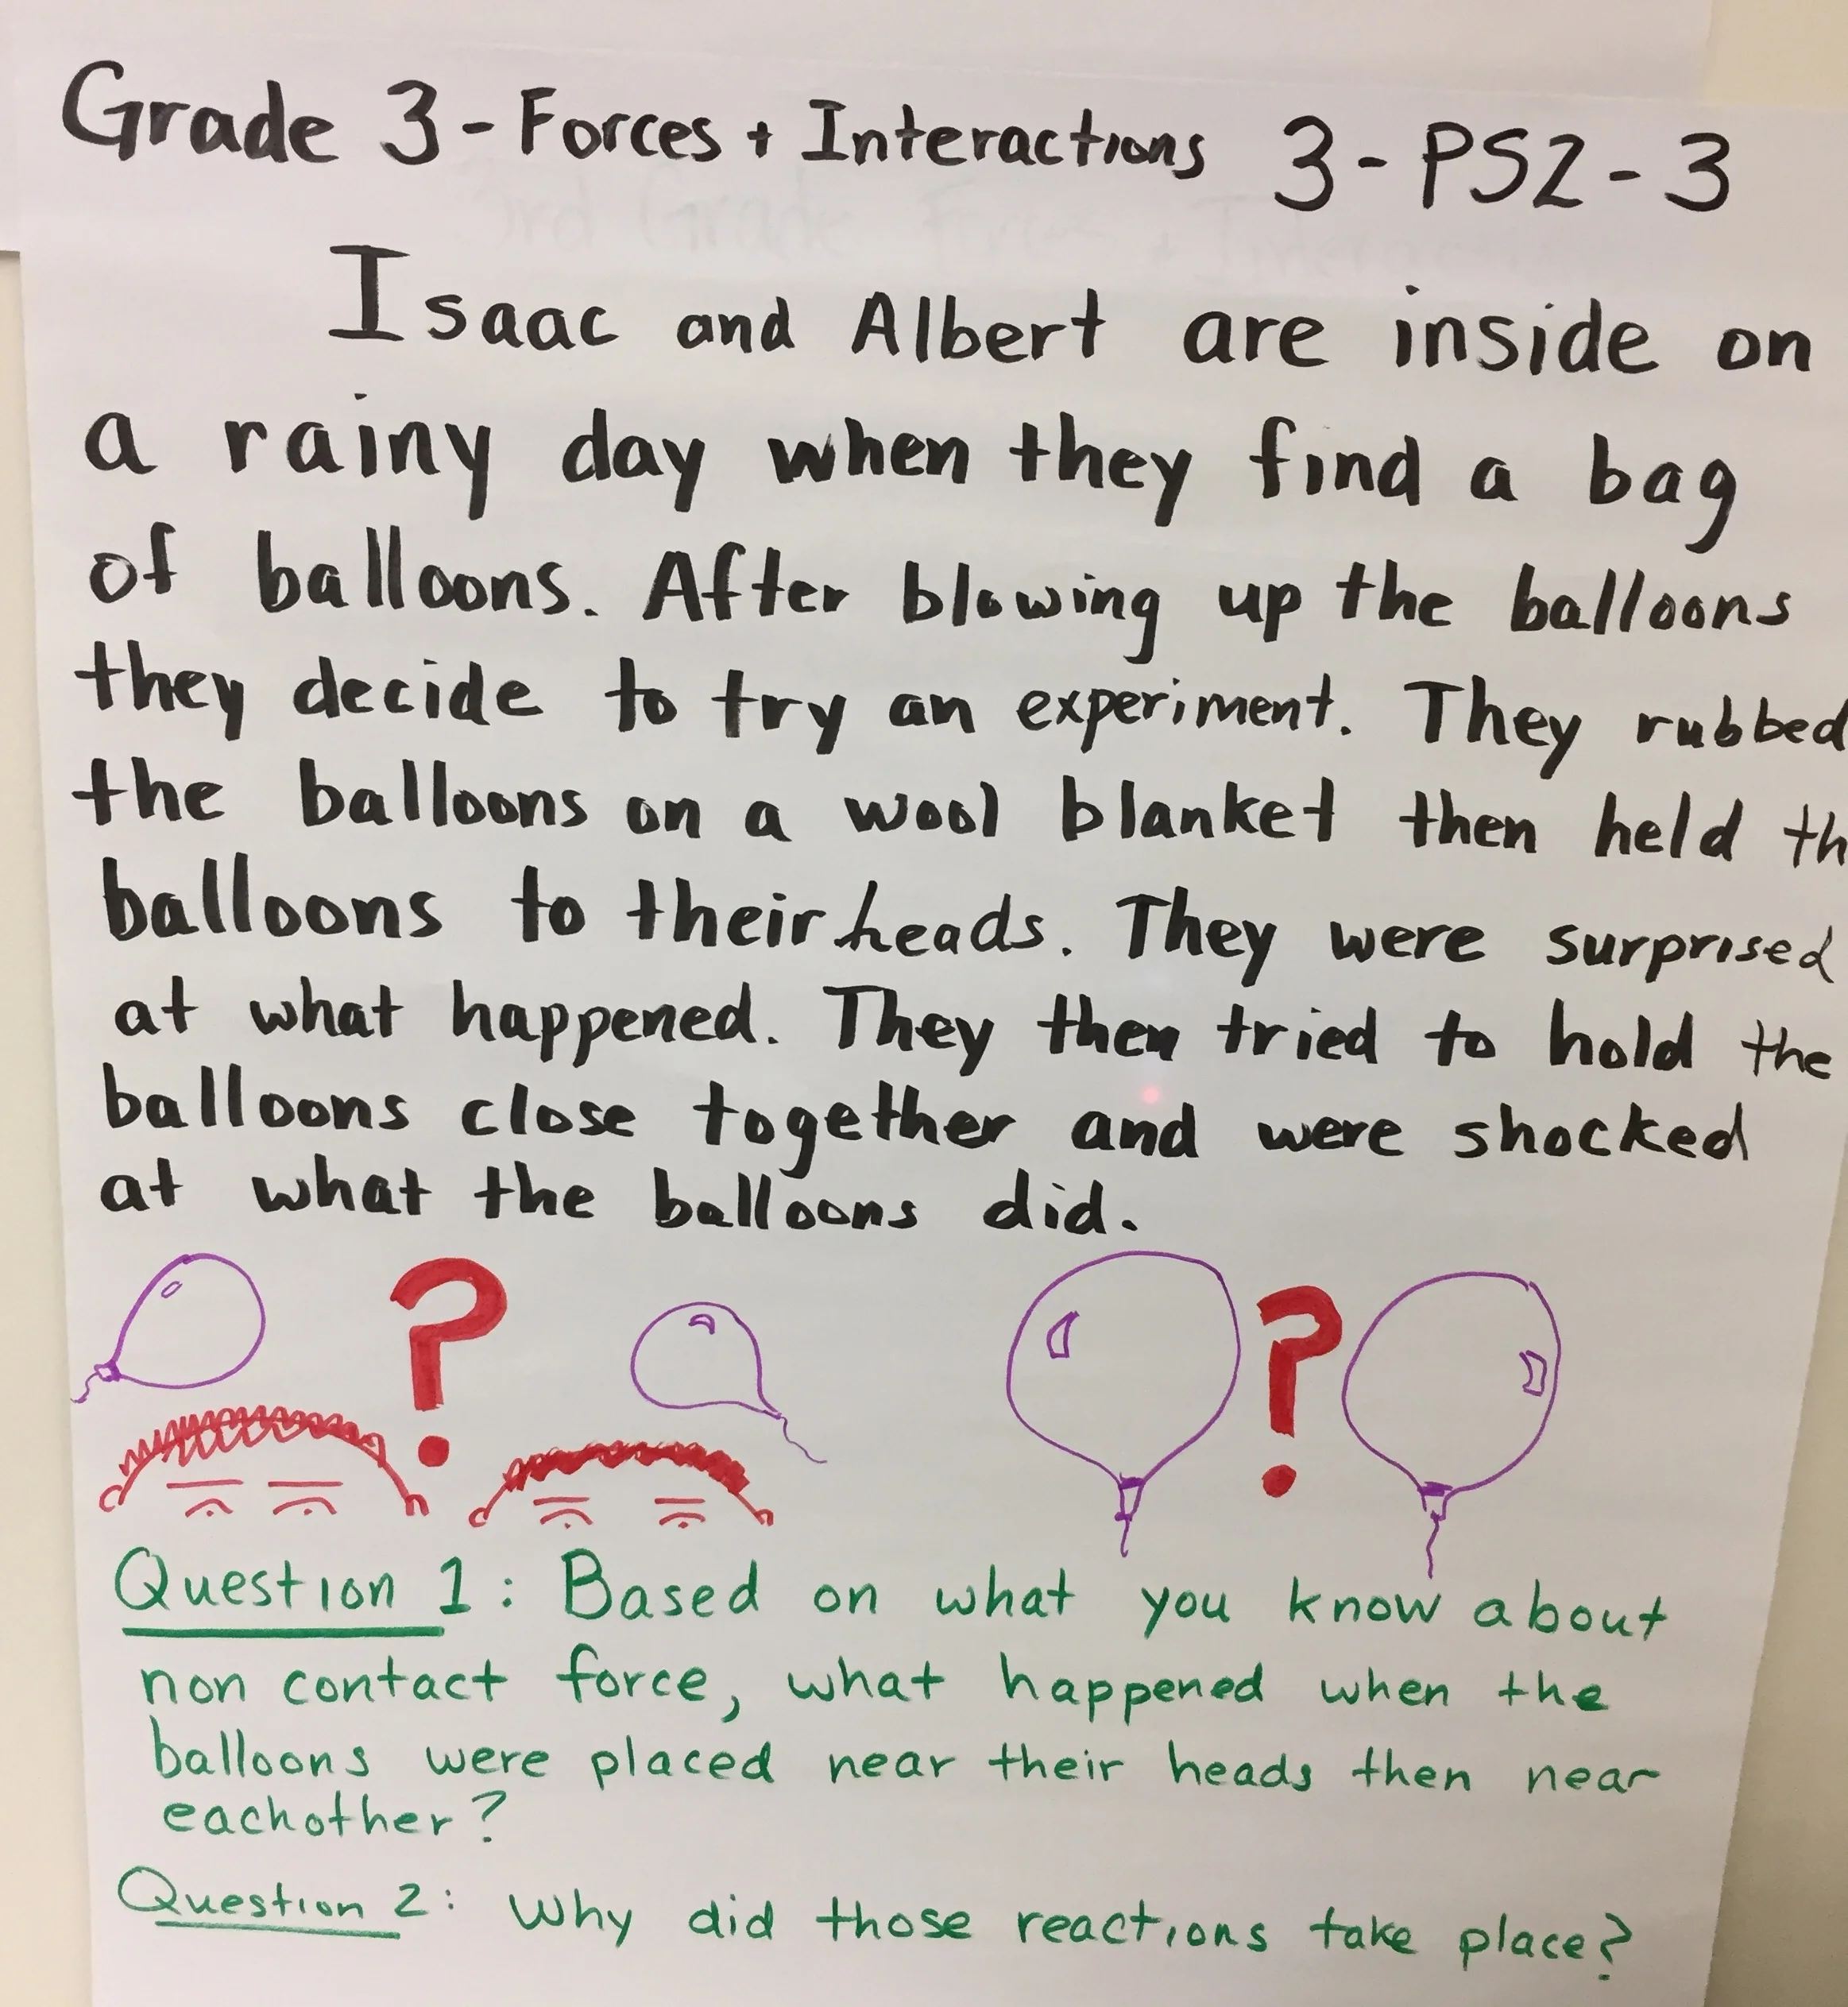 Grade 3 - Forces + Interactions 3-PS2-3
Isaac and Albert are inside on
a rainy day when they find a bag
of balloons. After blowing up the balloons
they decide to try an experiment. They rubbed
the balloons on a wool blanket then held th
balloons to their heads. They were surprised
at what happened. They then tried to hold the
balloons close together and were shocked
at what the balloons did.
?
?
Question 1: Based on what you know about
non contact force, what happened when the
balloons were placed near their heads then near
eachother?
Question 2: Why did those reactions take place?